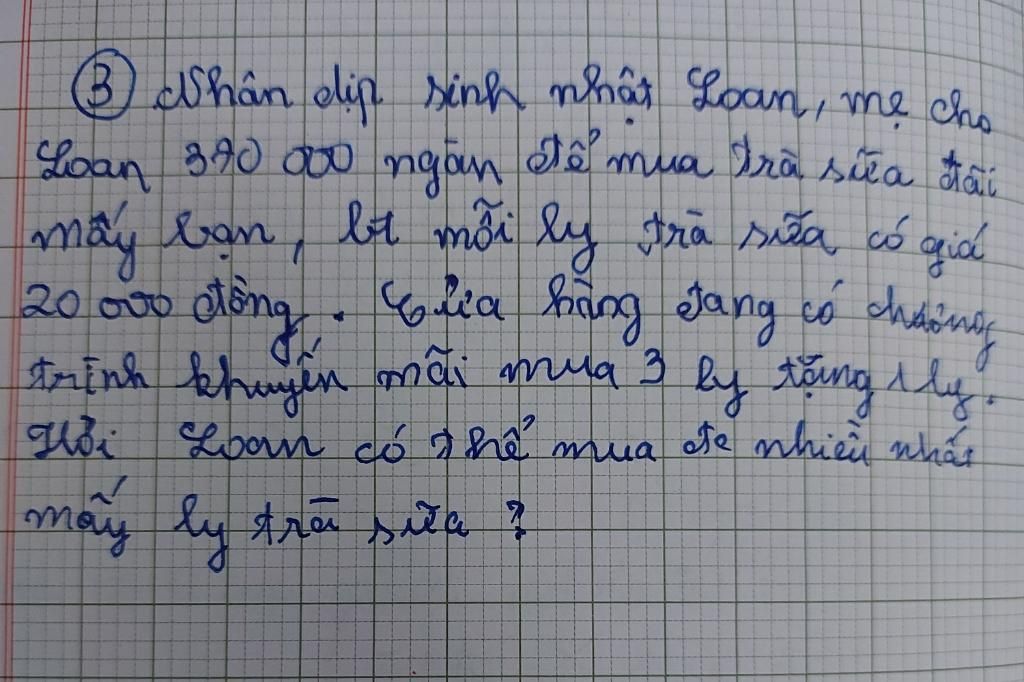 ③ Nhân dịp sinh nhật Loan, mẹ cho
Loan 390 000 ngàn để mua trà sữa đãi
mấy bạn, bt mỗi ly trà sữa có giá
20 000 đồng. Cửa hàng đang có chương
trình khuyến mãi mua 3 ly tặng 1 ly.
Hỏi Loan có thể mua đc nhiều nhất
mấy ly trà sữa ?